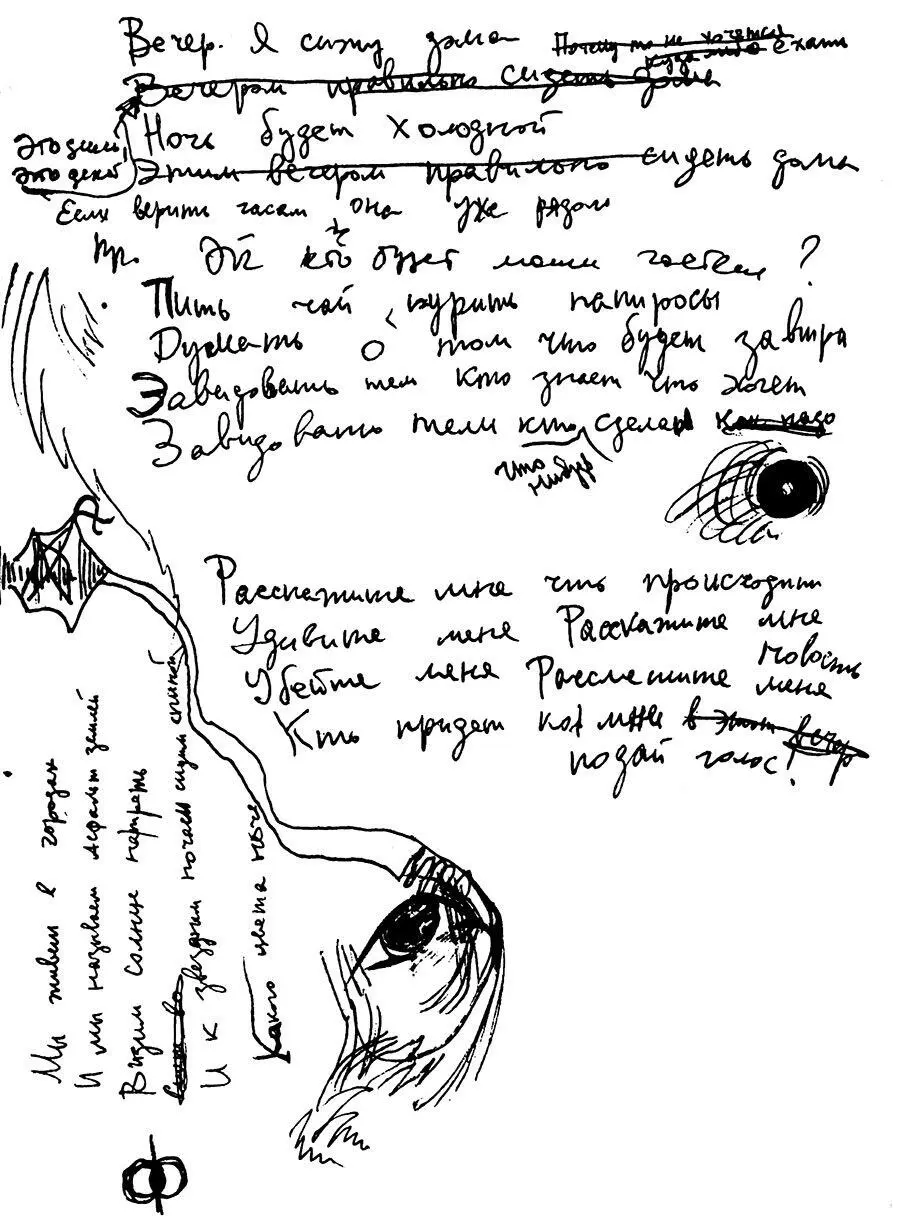 Вечер. Я сижу дома
Почему то не хочется
куда либо ехать
Вечером правильно сидеть дома
Ночь будет холодной
Это зима
Это декабрь
Этим вечером правильно сидеть дома
Если верить часам она уже рядом
Пр. Эй кто будет моим гостем?
Пить чай курить папиросы
Думать о том что будет завтра
Завидовать тем кто знает что хочет
Завидовать тем кто сделал как надо
что нибудь
Расскажите мне что происходит
Удивите меня Расскажите мне
новость
Убейте меня Рассмешите меня
Кто придет ко мне в этот вечер
подай голос!
Мы живем в городах
И мы называем асфальт землей
Видим солнце
И к звездным ночам
Какого цвета ночь